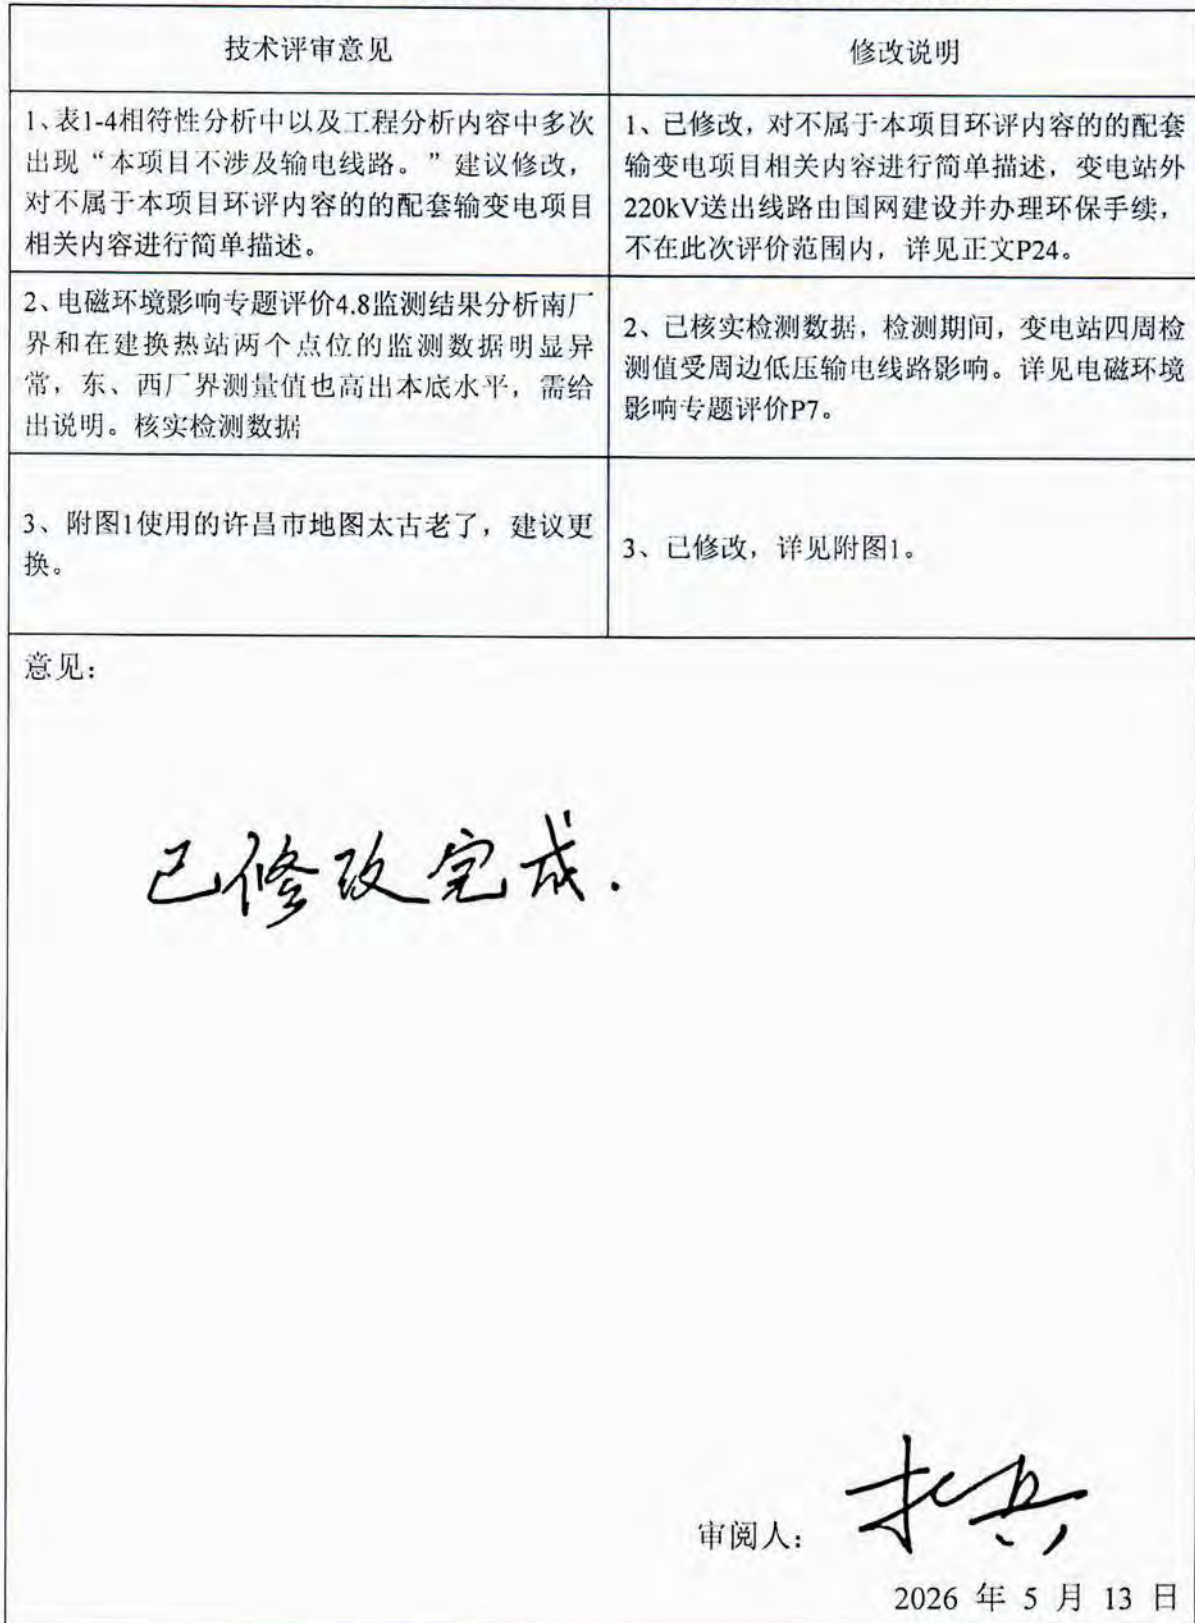 技术评审意见
修改说明
1、表1-4相符性分析中以及工程分析内容中多次
出现“本项目不涉及输电线路。”建议修改，
对不属于本项目环评内容的的配套输变电项目
相关内容进行简单描述。
1、已修改，对不属于本项目环评内容的的配套
输变电项目相关内容进行简单描述，变电站外
220kV送出线路由国网建设并办理环保手续，
不在此次评价范围内，详见正文P24。
2、电磁环境影响专题评价4.8监测结果分析南厂
界和在建换热站两个点位的监测数据明显异
常，东、西厂界测量值也高出本底水平，需给
出说明。核实检测数据
2、已核实检测数据，检测期间，变电站四周检
测值受周边低压输电线路影响。详见电磁环境
影响专题评价P7。
3、附图1使用的许昌市地图太古老了，建议更
换。
3、已修改，详见附图1。
意见：
已修改完成.
审阅人：
2026 年 5 月 13 日